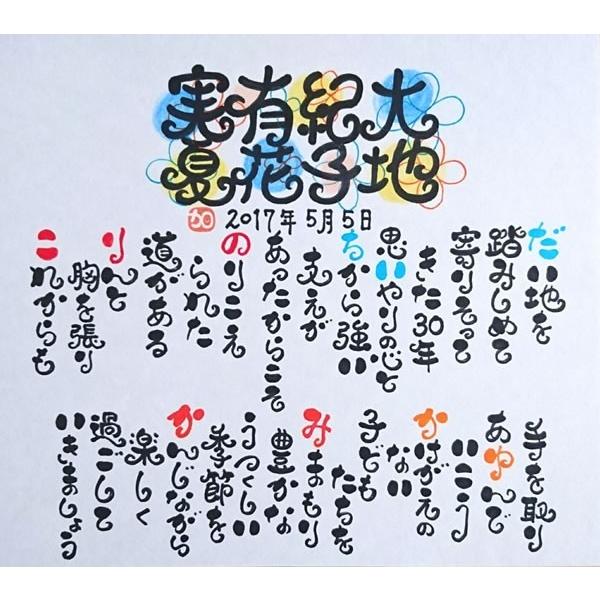 大地
紀子
有花
実夏
加 2017年5月5日
だい地を
踏みしめて
寄りそって
きた30年
思いやりの心と
ちから強い
支えが
あったからこそ
のりこえ
られた
道がある
りんと
胸を張り
これからも
手を取り
あゆんで
いこう
かけがえの
ない
子ども
たちを
みまもり
豊かな
うつくしい
季節を
かんじながら
楽しく
過ごして
いきましょう